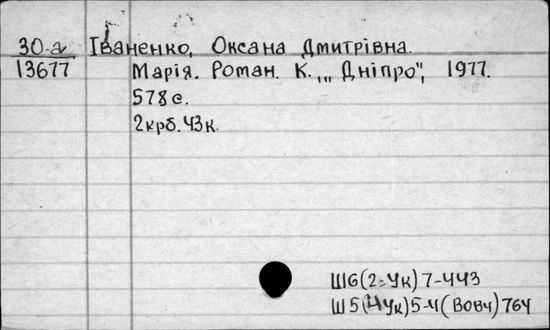 30-а Іваненко, Оксана Дмитрівна.
13677 Марія. Роман. К. „Дніпро", 1977.
578 с.
2крб. 43к.
Ш6(2=Ук)7-443
Ш5(4Ук)5-4(Вовч)764